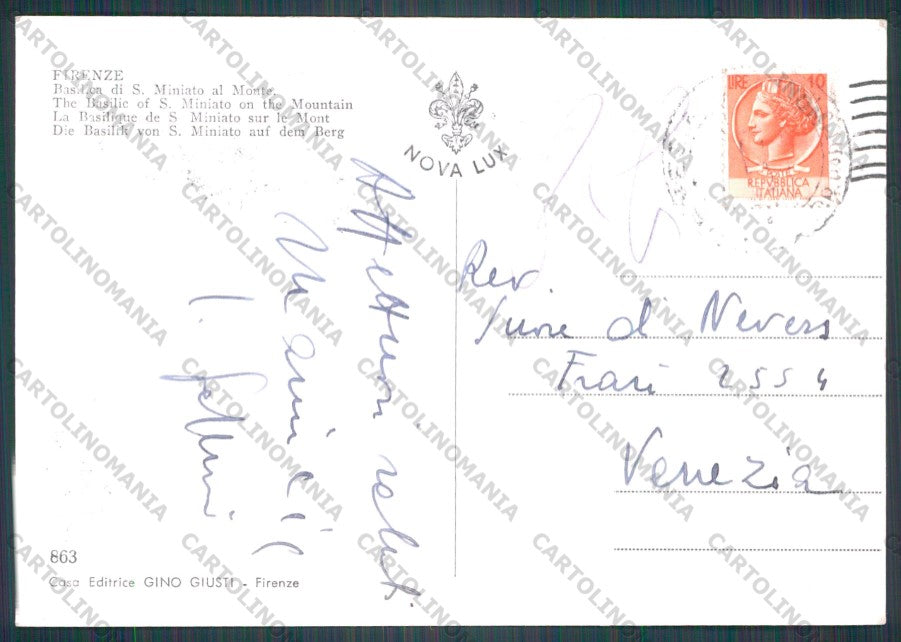 FIRENZE
Basilica di S. Miniato al Monte.
The Basilic of S. Miniato on the Mountain
La Basilique de S Miniato sur le Mont
Die Basilik von S. Miniato auf dem Berg
NOVA LUX
LIRE 10
REPVBBLICA
ITALIANA
Affettuosi saluti
Rev.
Suore di Nevers
Frari 2554
Venezia
863
Casa Editrice GINO GIUSTI - Firenze
CARTOLINOMANIA